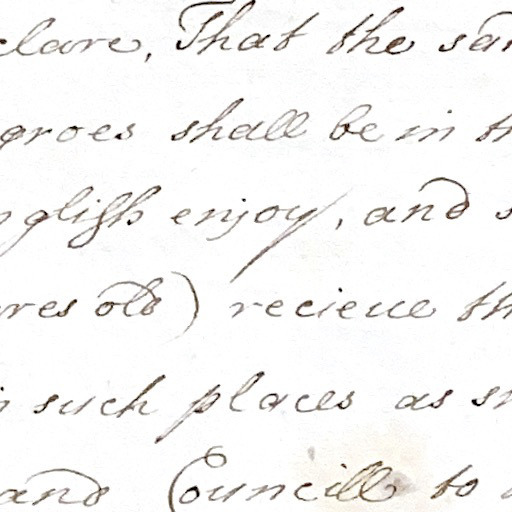 clare, That the sa
groes shall be in th
nglish enjoy, and s
res old) recieue th
such places as s
and Councill to